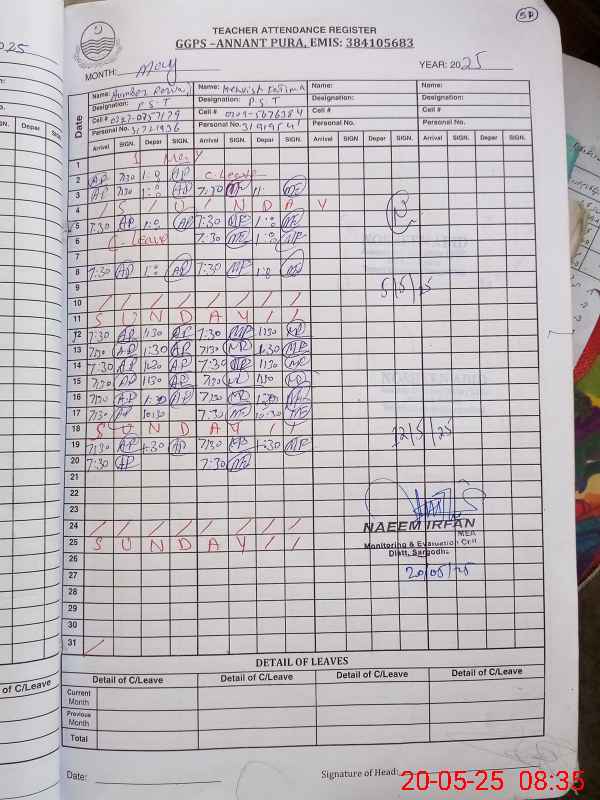 50
TEACHER ATTENDANCE REGISTER
GGPS –ANNANT PURA, EMIS: 384105683
MONTH: May YEAR: 2025
Name: Name: Mehvish Fatima Name: Name:
Designation: P.S.T Designation: P.S.T Designation: Designation:
Cell # Cell # Cell # Cell #
Personal No. Personal No. Personal No. Personal No.
Date Arrival SIGN. Depar SIGN. Arrival SIGN. Depar SIGN. Arrival SIGN. Depar SIGN. Arrival SIGN. Depar SIGN.
1 1 May
2 AP 7:30 1:0 AP C. Leave
3 AP 7:30 1:0 AP 7:30 MF 11: MF
4 S U N D A Y
5 7:30 AP 1:0 AP 7:30 MF 1:0 MF
6 C. Leave 7:30 MF 1:0 MF
7
8 7:30 AP 1:0 AP 7:30 MF 1:0 MF
9
5/5/25
10 / / / / / / / /
11 S U N D A Y / /
12 7:30 AP 1:30 AP 7:30 MF 1:30 MF
13 7:30 AP 1:30 AP 7:30 MF 1:30 MF
14 7:30 AP 1:30 AP 7:30 MF 1:30 MF
15 7:30 AP 1:30 AP 7:30 MF 1:30 MF
16 7:30 AP 1:30 AP 7:30 MF 1:30 MF
17 7:30 AP 10:30 7:30 MF 10:30 MF
18 S U N D A Y / /
12/5/25
19 7:30 AP 1:30 AP 7:30 MF 1:30 MF
20 7:30 AP 7:30 MF
21
22
23
24 / / / / / / / /
NAEEM IRFAN
MEA
25 S U N D A Y / /
Monitoring & Evaluation Cell
Distt, Sargodha
26
20/05/25
27
28
29
30
31
DETAIL OF LEAVES
Detail of C/Leave Detail of C/Leave Detail of C/Leave Detail of C/Leave
Current Month
Previous Month
Total
Date: Signature of Head:
20-05-25 08:35
2025
SIGN. Depar SIGN.
of C/Leave Detail of C/Leave